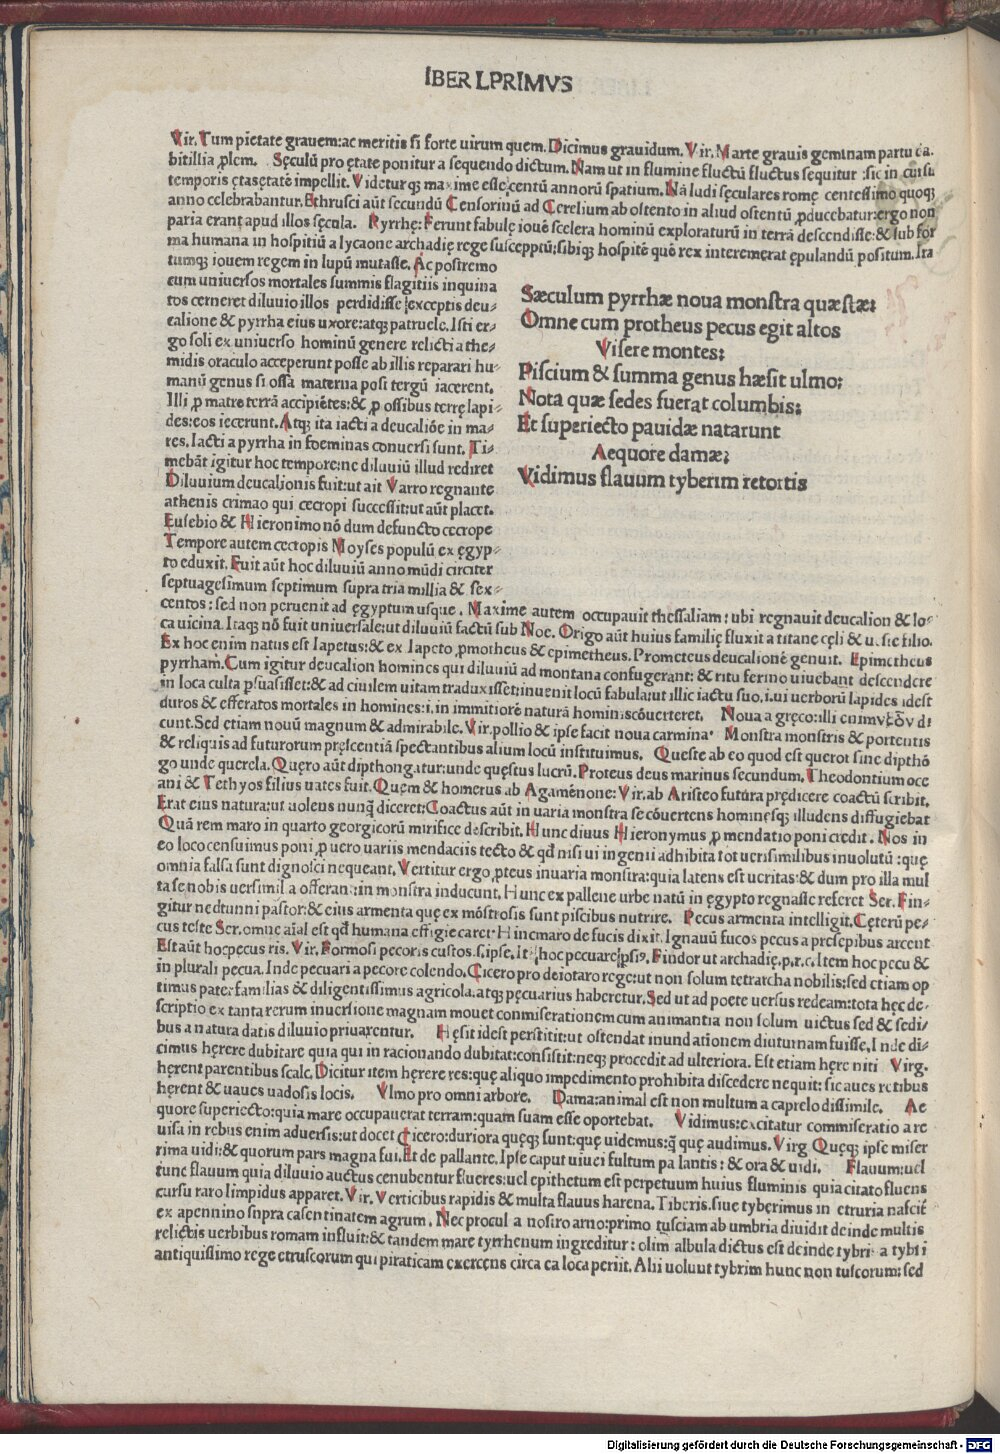 IBER LPRIMVS
Vir. Tum pietate grauem: ac meritis si forte uirum quem. Dicimus grauidum. Vir. Marte grauis geminam partu da.
bit illia ꝓlem. Sęculū pro ętate ponitur a sequendo dictum. Nam ut in flumine fluctū fluctus sequitur: sic in cursu
temporis ętas ętatē impellit. Videturqꝫ maxime esse centū annorū spatium. Nā ludi sęculares romę centessimo quoqꝫ
anno celebrabantur. Ethrusci aūt secundū Censorinū ad Cerelium ab ostento in aliud ostentū ꝓducebatur: ergo non
paria erant apud illos sęcola. Pyrrhę: Ferunt fabulę iouē scelera hominū exploraturū in terrā descendisse: & sub for
ma humana in hospitiū a lycaone archadię rege susceptū: sibiqꝫ hospitē quē rex interemerat ępulandū positum. Ira
tumqꝫ iouem regem in lupū mutasse. Ac postremo
cum uniuersos mortales summis flagitiis inquina
tos cerneret diluuio illos perdidisse exceptis deu-
calione & pyrrha eius uxore: atqꝫ patruele. Isti er-
go soli ex uniuerso hominū genere relicti a the-
midis oraculo acceperunt posse ab illis reparari hu-
manū genus si ossa materna post tergū iacerent.
Illi ꝓ matre terrā accipiētes: & ꝓ ossibus terrę lapi-
des: eos iecerunt. Atqꝫ ita iacti a deucaliōe in ma-
res. Iacti a pyrrha in foeminas conuersi sunt. Ti-
mebāt igitur hoc tempore: ne diluuiū illud rediret
Diluuium deucalionis fuit: ut ait Varro regnante
athenis crimao qui cecropi successit: ut aūt placet.
Eusebio & Hieronimo nō dum defuncto cecrope
Tempore autem cecropis Moyses populū ex ęgyp-
to eduxit. Fuit aūt hoc diluuiū anno mūdi circiter
septuagesimum septimum supra tria millia & sex-
Sæculum pyrrhæ noua monstra quæstæ:
Omne cum protheus pecus egit altos
Visere montes:
Piscium & summa genus hæsit ulmo:
Nota quæ sedes fuerat columbis:
Et superiecto pauidæ natarunt
Aequore damæ:
Vidimus flauum tyberim retortis
centos: sed non peruenit ad ęgyptum usque. Maxime autem occupauit thessaliam: ubi regnauit deucalion & lo-
ca uicina. Itaqꝫ nō fuit uniuersale: ut diluuiū factū sub Noe. Origo aūt huius familię fluxit a titane cęli & uestę filio.
Ex hoc enim natus est Iapetus: & ex Iapeto ꝓmotheus & epimetheus. Prometeus deucalionē genuit. Epimetheus
pyrrham. Cum igitur deucalion homines qui diluuiū ad montana confugerant: & ritu ferino uiuebant descendere
in loca culta ꝓsuasisset: & ad ciuilem uitam traduxisset: inuenit locū fabula: ut illic iactu suo. i. ui uerborū lapides idest
duros & efferatos mortales in homines: i. in immitiorē naturā hominis cōuerteret. Noua a gręco: illi enim νέον di
cunt. Sed etiam nouū magnum & admirabile. Vir. pollio & ipse facit noua carmina. Monstra monstris & portentis
& reliquis ad futurorum pręscentiā spectantibus alium locū instituimus. Queste ab eo quod est queror sine dipthō
go unde querela. Quęro aūt dipthongatur: unde quęstus lucrū. Proteus deus marinus secundum. Theodontium oce
ani & Tethyos filius uates fuit. Quem & homerus ab Agamēnone: Vir. ab Aristeo futura prędicere coactū scribit.
Erat eius natura: ut uolens nunq̄ diceret: Coactus aūt in uaria monstra se cōuertens hominesqꝫ illudens diffugiebat
Quā rem maro in quarto georgicorū mirifice describit. Hunc diuus Hieronymus ꝓ mendatio poni credit. Nos in
eo loco censuimus poni ꝓ uero uariis mendaciis tecto & qd̄ nisi ui ingenii adhibita tot uerisimilibus inuolutū: quę
omnia falsa sunt dignosci nequeant. Vertitur ergo ꝓteus in uaria monstra: quia latens est ueritas: & dum pro illa mul
ta se nobis uersimilia offerant: in monstra inducunt. Hunc ex pallene urbe natū in ęgypto regnasse referet Ser. Fin-
gitur neptunni pastor: & eius armenta quę ex mōstrosis sunt piscibus nutrire. Pecus armenta intelligit. Cęterū pe-
cus teste Ser. omne aīal est qd̄ humana effigie caret. Hinc maro de fucis dixit. Ignauū fucos pecus a presepibus arcent
Est aūt hoc pecus ris. Vir. Formosi pecoris custos. s. ipse. Itē hoc pecuare ipsiꝰ. Findor ut archadię. p. r. c. Item hoc pecu &
in plurali pecua. Inde pecuari a pecore colendo. Cicero pro deiotaro rege: ut non solum tetrarcha nobilis: sed etiam op
timus pater familias & diligentissimus agricola. atqꝫ pęcuarius haberetur. Sed ut ad poete uersus redeam: tota hęc de-
scriptio ex tanta rerum inuersione magnam mouet conmiserationem cum animantia non solum uictus sed & sedi-
bus a natura datis diluuio priuarentur. Hęsit idest perstitit: ut ostendat inundationem diuturnam fuisse. Inde di-
cimus hęrere dubitare quia qui in racionando dubitat: consistit: neqꝫ procedit ad ulteriora. Est etiam hęre niti Virg.
hęrent parentibus scalę. Dicitur item hęrere res: quę aliquo impedimento prohibita discedere nequit: sic aues retibus
hęrent & naues uadosis locis. Vlmo pro omni arbore. Dama: animal est non multum a caprelo dissimile. Ae
quore superiecto: quia mare occupauerat terram: quam suam esse oportebat. Vidimus: excitatur commiseratio a re
uisa in rebus enim aduersis: ut docet Cicero: duriora quęqꝫ sunt: quę uidemus: q̄ quę audimus. Virg Quęqꝫ ipse miser
rima uidi: & quorum pars magna fui. Et de pallante. Ipse caput niuei fultum pallantis: & ora & uidi. Flauum: uel
tunc flauum quia diluuio auctus cenubentur flueres: uel epithetum est perpetuum huius fluminis quia citato fluens
cursu raro limpidus apparet. Vir. Verticibus rapidis & multa flauus harena. Tiberis. siue tyberimus in etruria nascit̄
ex apennino supra casentinatem agrum. Nec procul a nostro arno: primo tusciam ab umbria diuidit deinde multis
relictis uerbibus romam influit: & tandem mare tyrrhenum ingreditur: olim albula dictus est deinde tybris a tybri
antiquissimo rege etruscorum qui piraticam exercens circa ea loca periit. Alii uoluut tybrim hunc non tuscorum: sed
Digitalisierung gefördert durch die Deutsche Forschungsgemeinschaft - DFG